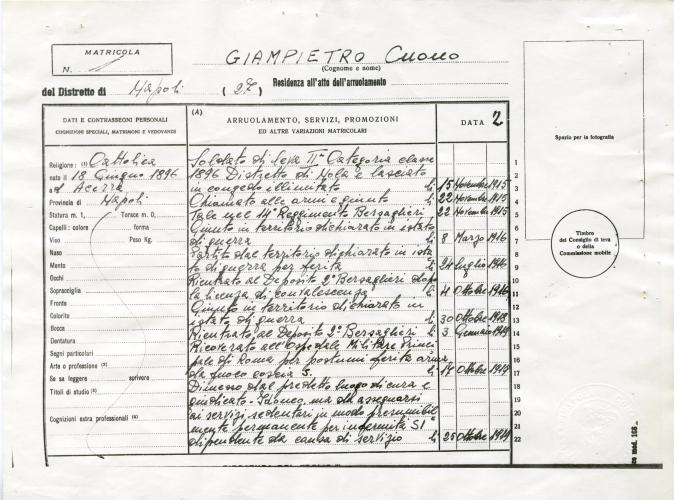 MATRICOLA
N.
GIAMPIETRO Cuono
(Cognome e nome)
del Distretto di Napoli (27) Residenza all'atto dell'arruolamento
DATI E CONTRASSEGNI PERSONALI
COGNIZIONI SPECIALI, MATRIMONI E VEDOVANZE
(A)
ARRUOLAMENTO, SERVIZI, PROMOZIONI
ED ALTRE VARIAZIONI MATRICOLARI
DATA 2
Spazio per la fotografia
Timbro
del Consiglio di leva
o della
Commissione mobile
Religione: (1) Cattolica
nato il 18 Giugno 1896
a d Acerra
Provincia di Napoli
Statura m. 1, Torace m. 0,
Capelli: colore forma
Viso Peso Kg.
Naso
Mento
Occhi
Sopracciglia
Fronte
Colorito
Bocca
Dentatura
Segni particolari
Arte o professione (2)
Se sa leggere scrivere
Titoli di studio (4)
Cognizioni extra professionali (4)
Soldato di leva IIª Categoria classe 1
1896 Distretto di Nola e lasciato 2
in congedo illimitato lì 15 Novembre 1915 3
Chiamato alle armi e giunto lì 22 Novembre 1915 4
Tale nel 14° Reggimento Bersaglieri 22 Novembre 1915 5
Giunto in territorio dichiarato in istato 6
di guerra lì 8 Marzo 1916 7
Partito dal territorio dichiarato in ista 8
to di guerra per ferita lì Luglio 9
Rientrato al Deposito 2° Bersaglieri dopo 10
la licenza di convalescenza lì 4 Ottobre 1916 11
Giunto in territorio dichiarato in 12
istato di guerra lì 30 Ottobre 13
Rientrato al Deposito 2° Bersaglieri lì 3 Gennaio 1919 14
Ricoverato all'Ospedale Militare Princi 15
pale di Roma per postumi ferita arma 16
da fuoco coscia S. lì 17 Ottobre 1919 17
Dimesso dal predetto luogo di cura e 18
giudicato: Idoneo, ma da assegnarsi 19
ai servizi sedentari in modo presumibil 20
mente permanente per infermità SI 21
dipendente da causa di servizio lì 25 Ottobre 1919 22